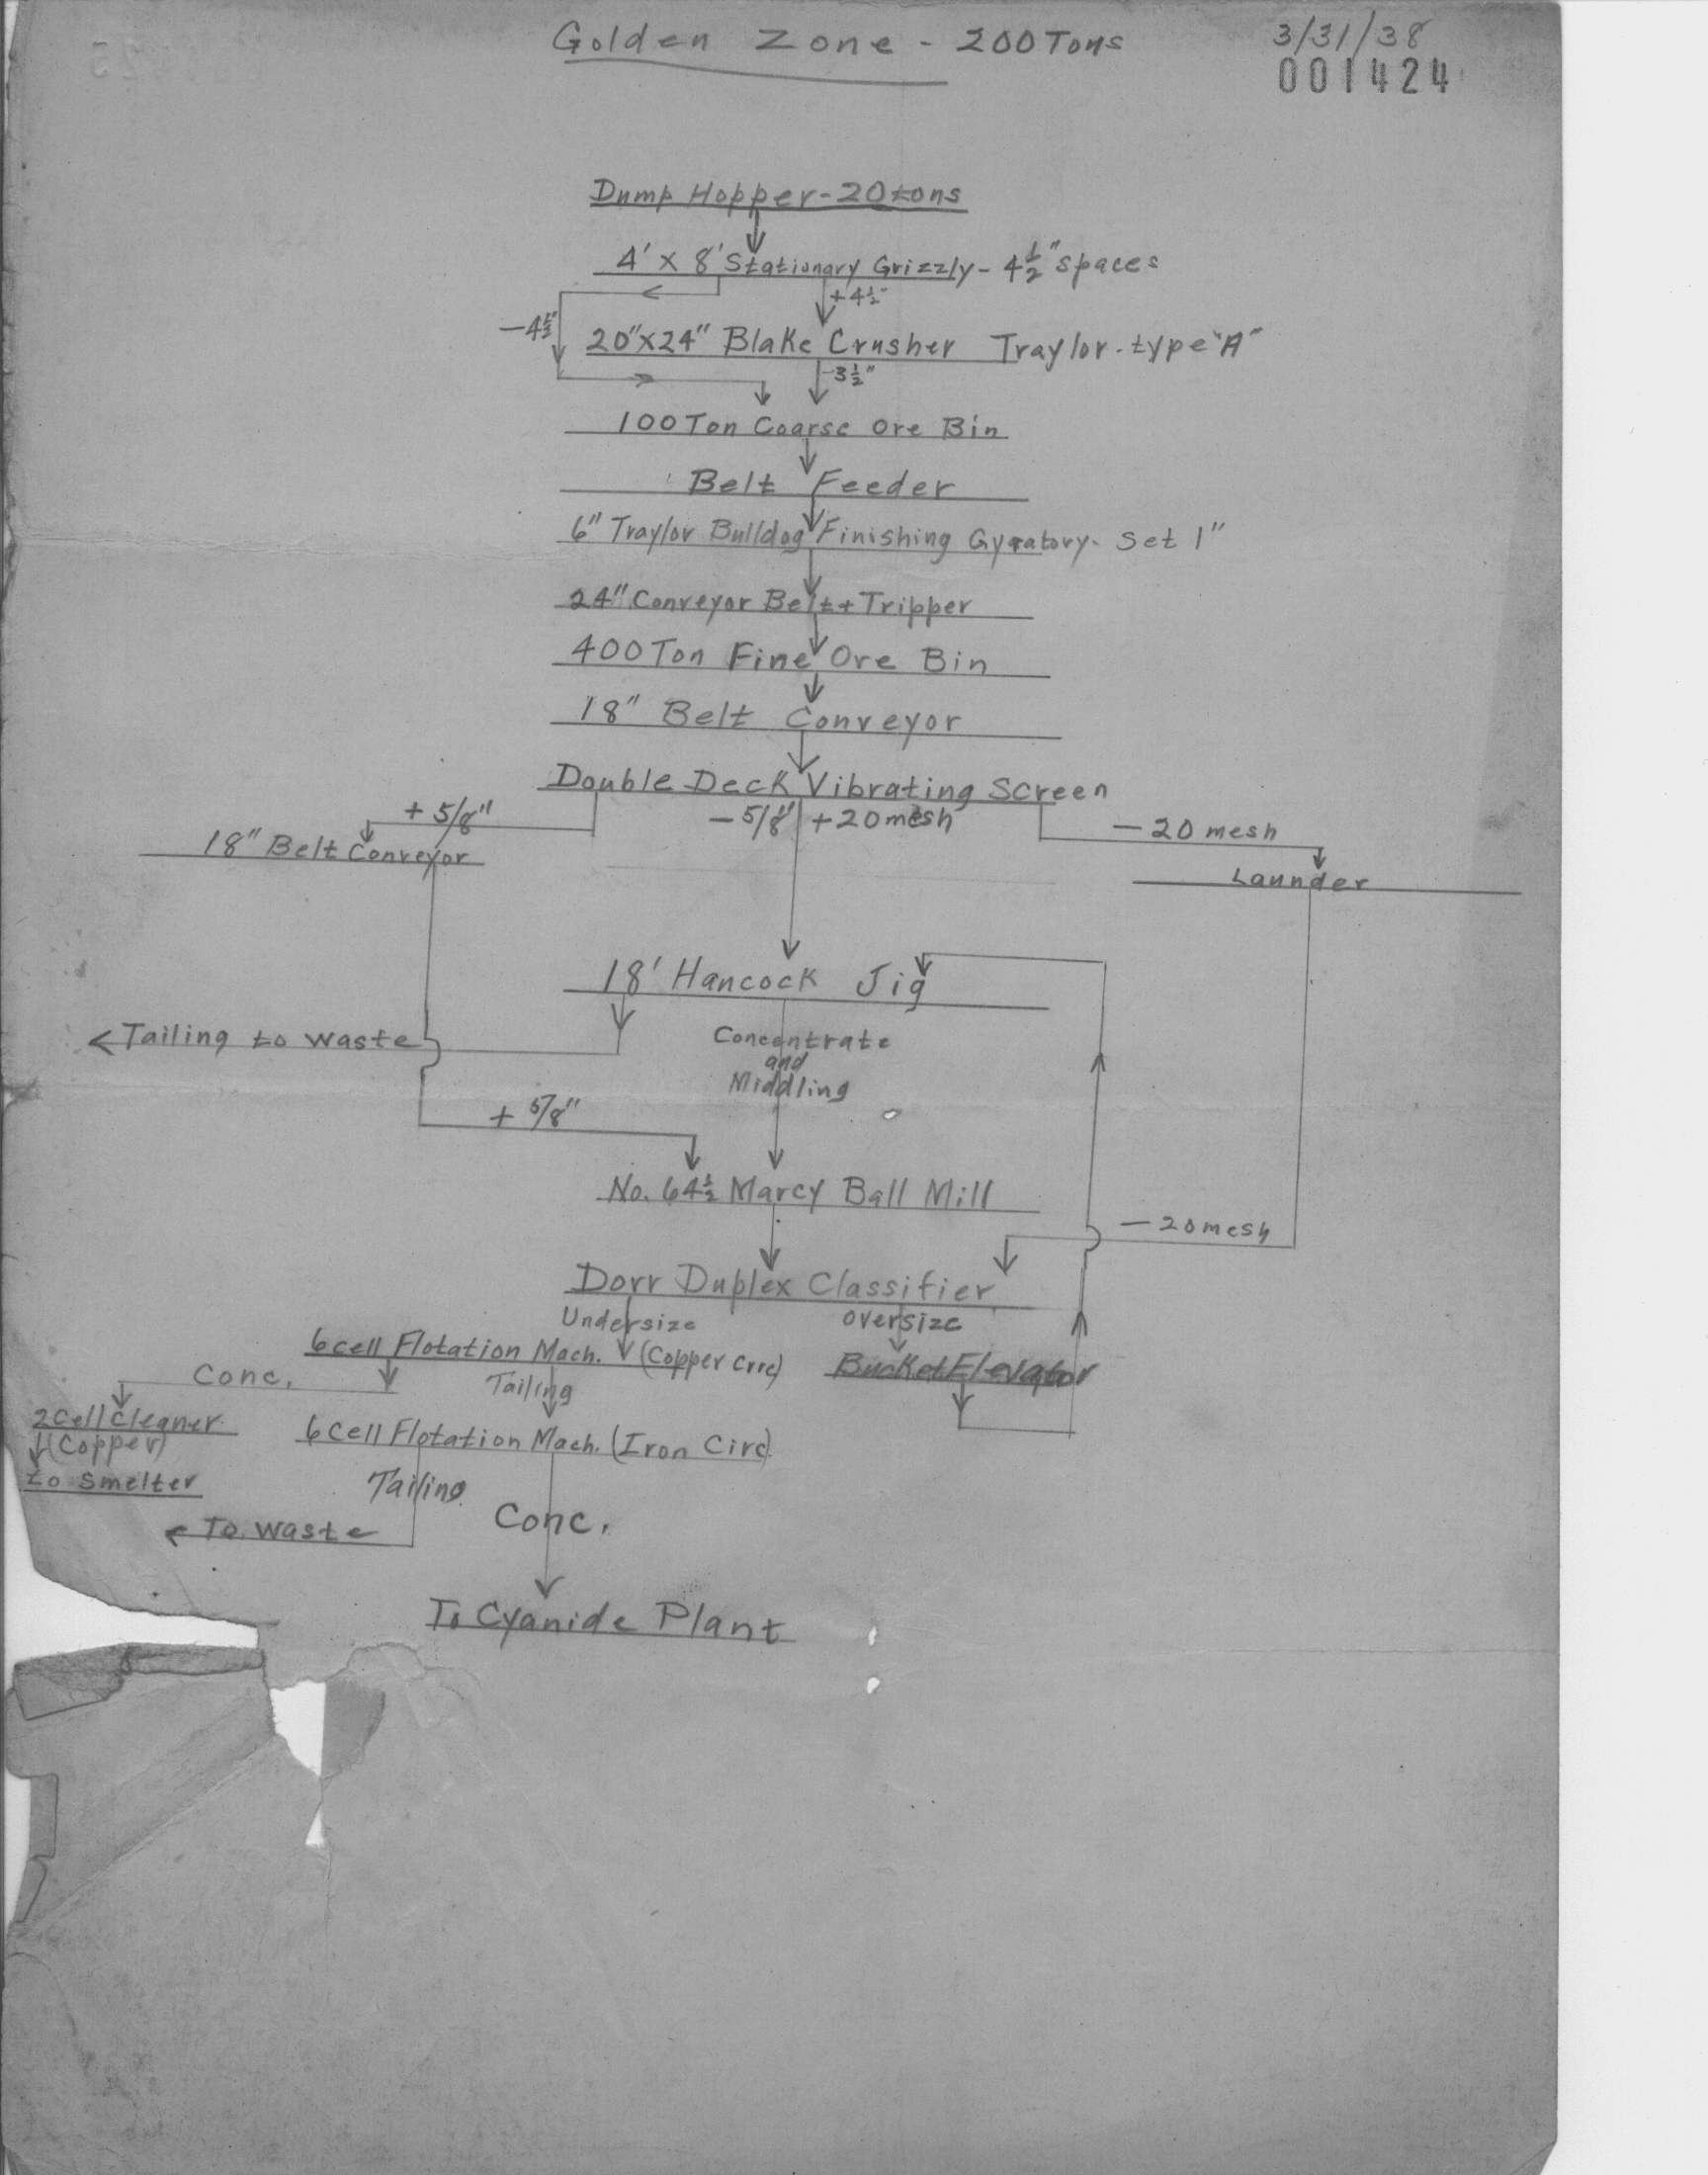 Golden Zone - 200 Tons
3/31/38
001424
Dump Hopper - 20 tons
4' x 8' Stationary Grizzly - 4½" spaces
+4½"
-4½"
20"x24" Blake Crusher Traylor - type "A"
-3½"
100 Ton Coarse Ore Bin
Belt Feeder
6" Traylor Bulldog Finishing Gyratory - Set 1"
24" Conveyor Belt + Tripper
400 Ton Fine Ore Bin
18" Belt Conveyor
Double Deck Vibrating Screen
+ 5/8"
- 5/8" + 20 mesh
- 20 mesh
18" Belt Conveyor
Launder
18' Hancock Jig
Tailing to waste
Concentrate
and
Middling
+ 5/8"
No. 64½ Marcy Ball Mill
- 20 mesh
Dorr Duplex Classifier
Undersize
Oversize
6 cell Flotation Mach. (Copper Circ)
Bucket Elevator
Conc.
Tailing
2 Cell Cleaner
(Copper)
to Smelter
6 Cell Flotation Mach. (Iron Circ)
Tailing
Conc.
To waste
To Cyanide Plant